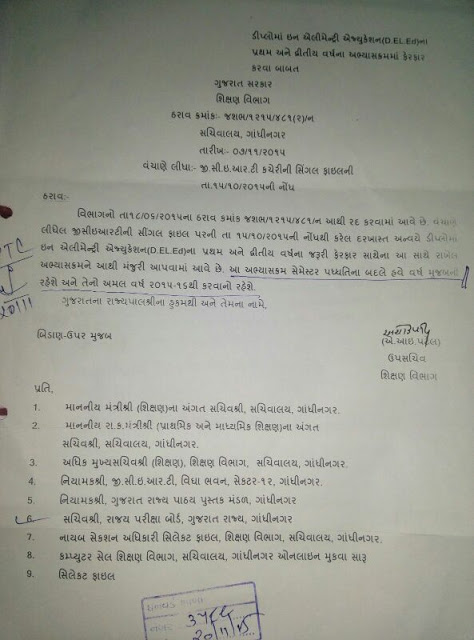 ડીપ્લોમાં ઇન એલીમેન્ટ્રી એજ્યુકેશન(D.EL.Ed)ના
પ્રથમ અને દ્રીતીય વર્ષના અભ્યાસક્રમમાં ફેરફાર
કરવા બાબત
ગુજરાત સરકાર
શિક્ષણ વિભાગ
ઠરાવ ક્રમાંક:- જશભ/૧૨૧૫/૪૮૧(૨)/ન
સચિવાલય, ગાંધીનગર
તારીખ:- ૦૭/૧૧/૨૦૧૫
વંચાણે લીધા:- જી.સી.ઇ.આર.ટી કચેરીની સિંગલ ફાઇલની
તા.૧૫/૧૦/૨૦૧૫ની નોંધ
ઠરાવ:-
વિભાગનો તા૧૮/૦૬/૨૦૧૫ના ઠરાવ ક્રમાંક જશભ/૧૨૧૫/૪૮૧/ન આથી રદ કરવામાં આવે છે. વંચાણે
લીધેલ જીસીઇઆરટીની સીંગલ ફાઇલ પરની તા ૧૫/૧૦/૨૦૧૫ની નોંધથી કરેલ દરખાસ્ત અન્વયે ડીપ્લોમાં
ઇન એલીમેન્ટ્રી એજ્યુકેશન(D.EL.Ed)ના પ્રથમ અને દ્રીતીય વર્ષના જરૂરી ફેરફાર સાથેના આ સાથે સામેલ
અભ્યાસક્રમને આથી મંજુરી આપવામાં આવે છે. આ અભ્યાસક્રમ સેમેસ્ટર પધ્ધતિના બદલે હવે વર્ષ મુજબનો
રહેશે અને તેનો અમલ વર્ષ ૨૦૧૫-૧૬થી કરવાનો રહેશે.
TC
20/11
ગુજરાતના રાજ્યપાલશ્રીના હુકમથી અને તેમના નામે.
બિડાણ-ઉપર મુજબ
(એ.આઇ.પટેલ)
ઉપસચિવ
શિક્ષણ વિભાગ
પ્રતિ,
1. માનનીય મંત્રીશ્રી (શિક્ષણ)ના અંગત સચિવશ્રી, સચિવાલય, ગાંધીનગર.
2. માનનીય રા.ક.મંત્રીશ્રી (પ્રાથમિક અને માધ્યમિક શિક્ષણ)ના અંગત
સચિવશ્રી, સચિવાલય, ગાંધીનગર.
3. અધિક મુખ્યસચિવશ્રી (શિક્ષણ), શિક્ષણ વિભાગ, સચિવાલય, ગાંધીનગર.
4. નિયામકશ્રી, જી.સી.ઇ.આર.ટી, વિધા ભવન, સેકટર-૧૨, ગાંધીનગર.
5. નિયામકશ્રી, ગુજરાત રાજ્ય પાઠય પુસ્તક મંડળ, ગાંધીનગર
6. સચિવશ્રી, રાજય પરીક્ષા બોર્ડ, ગુજરાત રાજ્ય, ગાંધીનગર
7. નાયબ સેકશન અધિકારી સિલેકટ ફાઇલ, શિક્ષણ વિભાગ, સચિવાલય, ગાંધીનગર.
8. કમ્પ્યુટર સેલ શિક્ષણ વિભાગ, સચિવાલય, ગાંધીનગર ઓનલાઇન મુકવા સારૂ
9. સિલેકટ ફાઇલ
20/11/15